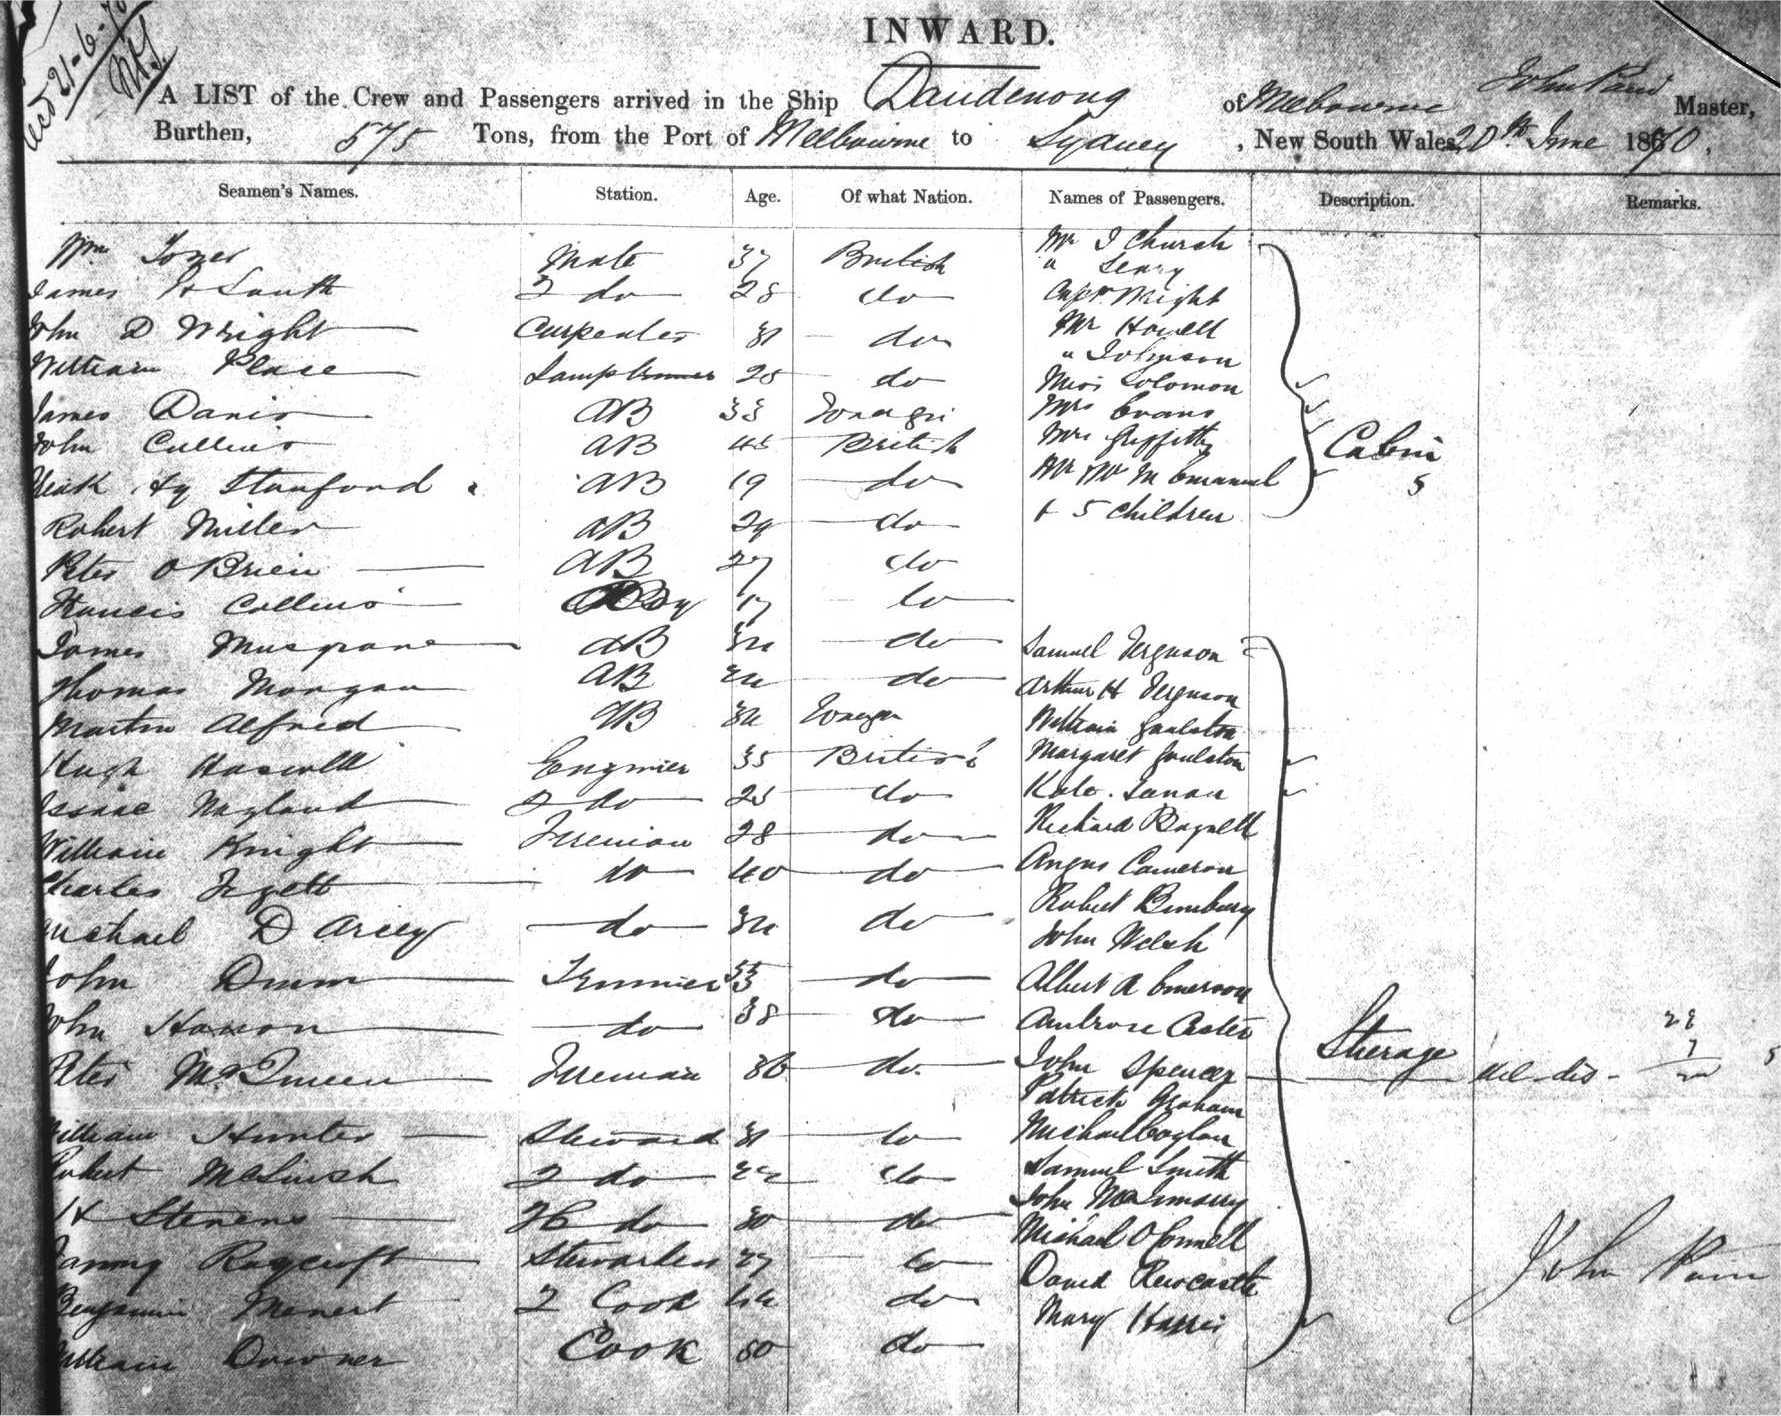 21-6-70
INWARD.
A LIST of the Crew and Passengers arrived in the Ship Dandenong of Melbourne John Master,
Burthen, 575 Tons, from the Port of Melbourne to Sydney, New South Wales, 20th June 1870,
Seamen's Names. Station. Age. Of what Nation. Names of Passengers. Description. Remarks.
Wm Jones Mate 37 British Mr J Church
" Leary
James South 2 do 28 do Capt Wright
John D Wright Carpenter 31 do Mr Howell
" Johnson
William Place 28 do Miss Solomon
James Davis AB 33 Foreign Mrs Evans
John Collins AB 45 British Mrs Griffiths Cabin
Hy Stanford AB 19 do Mr Mrs M Emanuel 5
Robert Miller AB 29 do + 5 children
Peter O Brien AB 27 do
Francis Collins Boy 17 do
James Musgrave AB 34 do Samuel Ferguson
Thomas Morgan AB 24 do Arthur H Ferguson
Martin Alfred AB 34 William Goulston
Hugh Haswell Engineer 35 British Margaret Goulston
Isaac 2 do 25 do Kate
Richard Bagnell
William Knight Fireman 28 do
Charles do 40 do Angus Cameron
Robert Bunbury
Michael D Arcey do 34 do John Welsh
John Trimmer do Albert A Emerson
John do 38 do Ambrose
Peter McQueen Fireman 36 do John Spencer Steerage
Patrick Graham
William Hunter Steward 31 do Michael Coglan
Robert 2 do 22 do Samuel Smith
John
H Stevens do 30 do Michael O Connell John
Roycroft Stewardess 27 do David Newcastle
Benjamin 2 Cook 44 do Mary Harris
William Downer Cook 50 do